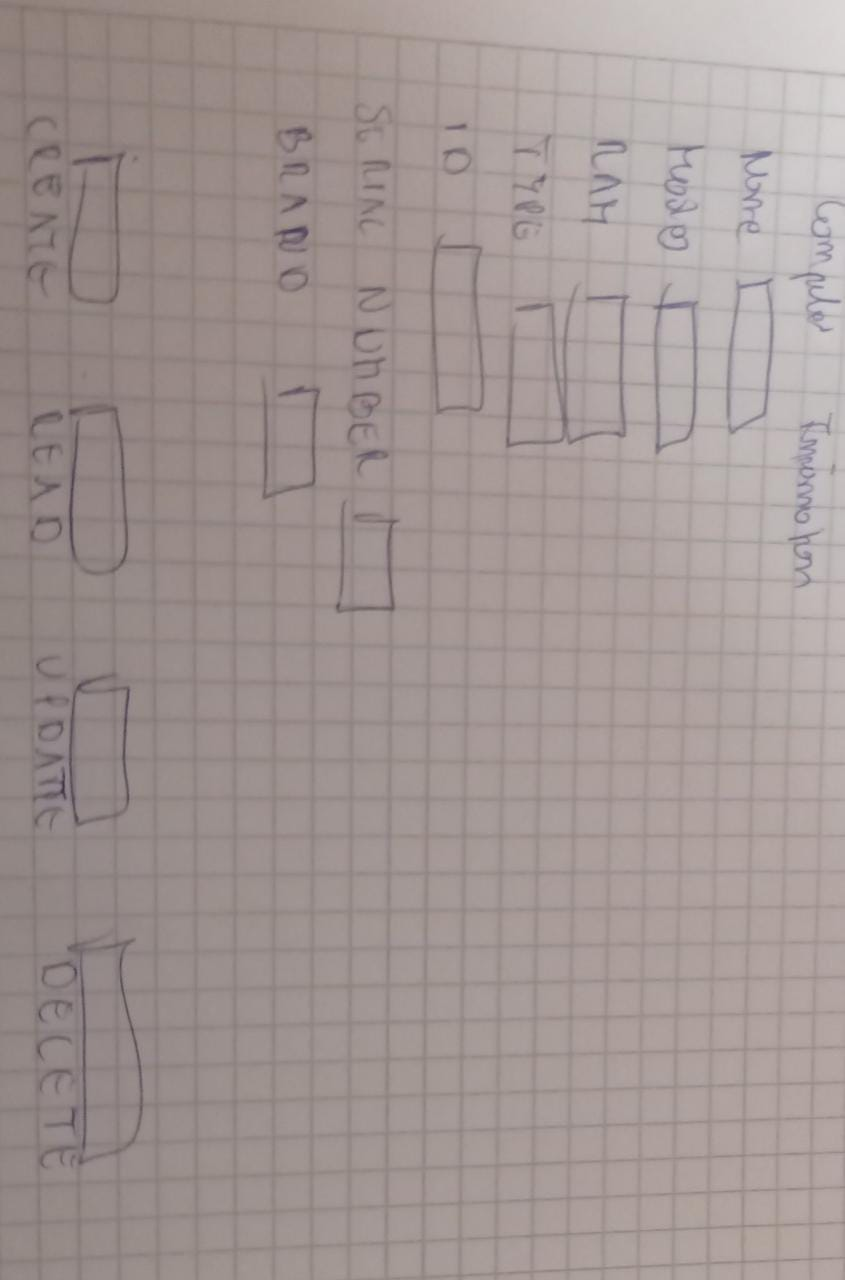 Computer Information
Name
Model
RAM
TYPE
ID
SERIAL NUMBER
BRAND
CREATE READ UPDATE DELETE